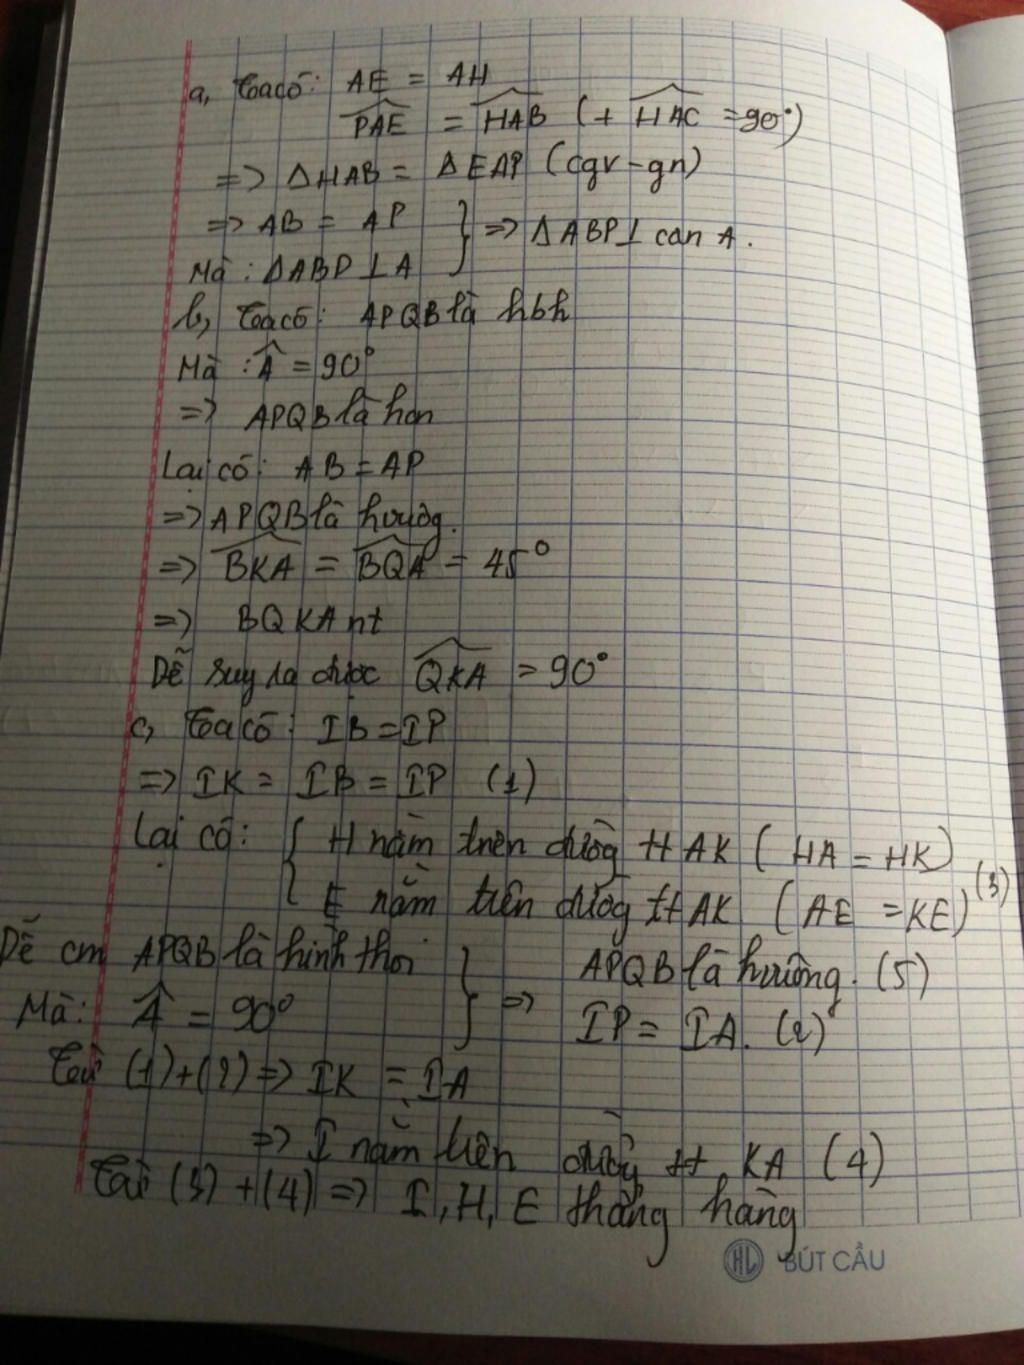 a, Ta có: AE = AH
PAE = HAB (+ HAC = 90°)
=> ΔHAB = ΔEAP (cgv-gn)
=> AB = AP } => ΔABP⊥ cân A.
Mà: ΔABP ⊥ A
b, Ta có: APQB là hbh
Mà: Â = 90°
=> APQB là hcn
Lại có: AB = AP
=> APQB là hvuông.
=> BKA = BQA = 45°
=> BQKA nt
Dễ suy ra được QKA = 90°
c, Ta có: IB = IP
=> IK = IB = IP (1)
Lại có: { H nằm trên đường tt AK (HA = HK)
E nằm trên đường tt AK (AE = KE) (3)
Dễ cm APQB là hình thoi } => APQB là hvuông. (5)
Mà: Â = 90° IP = IA. (2)
Từ (1)+(2) => IK = IA
=> I nằm trên đường tt KA (4)
Từ (3)+(4) => I, H, E thẳng hàng
HL BÚT CẦU